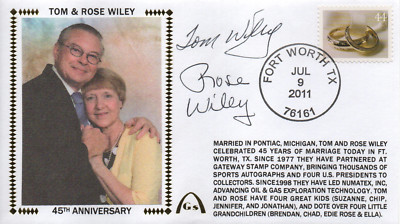 TOM & ROSE WILEY
Tom Wiley
Rose
Wiley
44
FORT WORTH TX
JUL
9
2011
76161
45TH ANNIVERSARY
GS
MARRIED IN PONTIAC, MICHIGAN, TOM AND ROSE WILEY
CELEBRATED 45 YEARS OF MARRIAGE TODAY IN FT.
WORTH, TX. SINCE 1977 THEY HAVE PARTNERED AT
GATEWAY STAMP COMPANY, BRINGING THOUSANDS OF
SPORTS AUTOGRAPHS AND FOUR U.S. PRESIDENTS TO
COLLECTORS. SINCE1998 THEY LED NUMATEX, INC,
ADVANCING OIL & GAS EXPLORATION TECHNOLOGY. TOM
AND ROSE HAVE FOUR GREAT KIDS (SUZANNE, CHIP,
JENNIFER, AND JONATHAN), AND DOTE OVER FOUR LITTLE
GRANDCHILDREN (BRENDAN, CHAD, EDIE ROSE & ELLA).